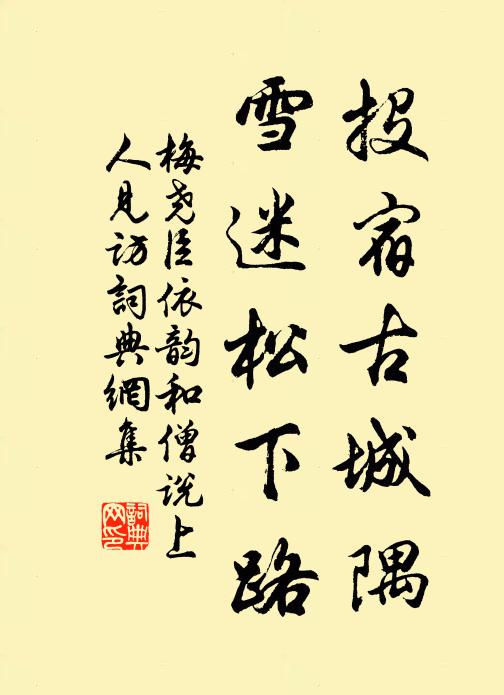 投宿古城隅
雪迷松下路
梅尧臣依韵和僧说上
人見访詞典網集
詞典
网印